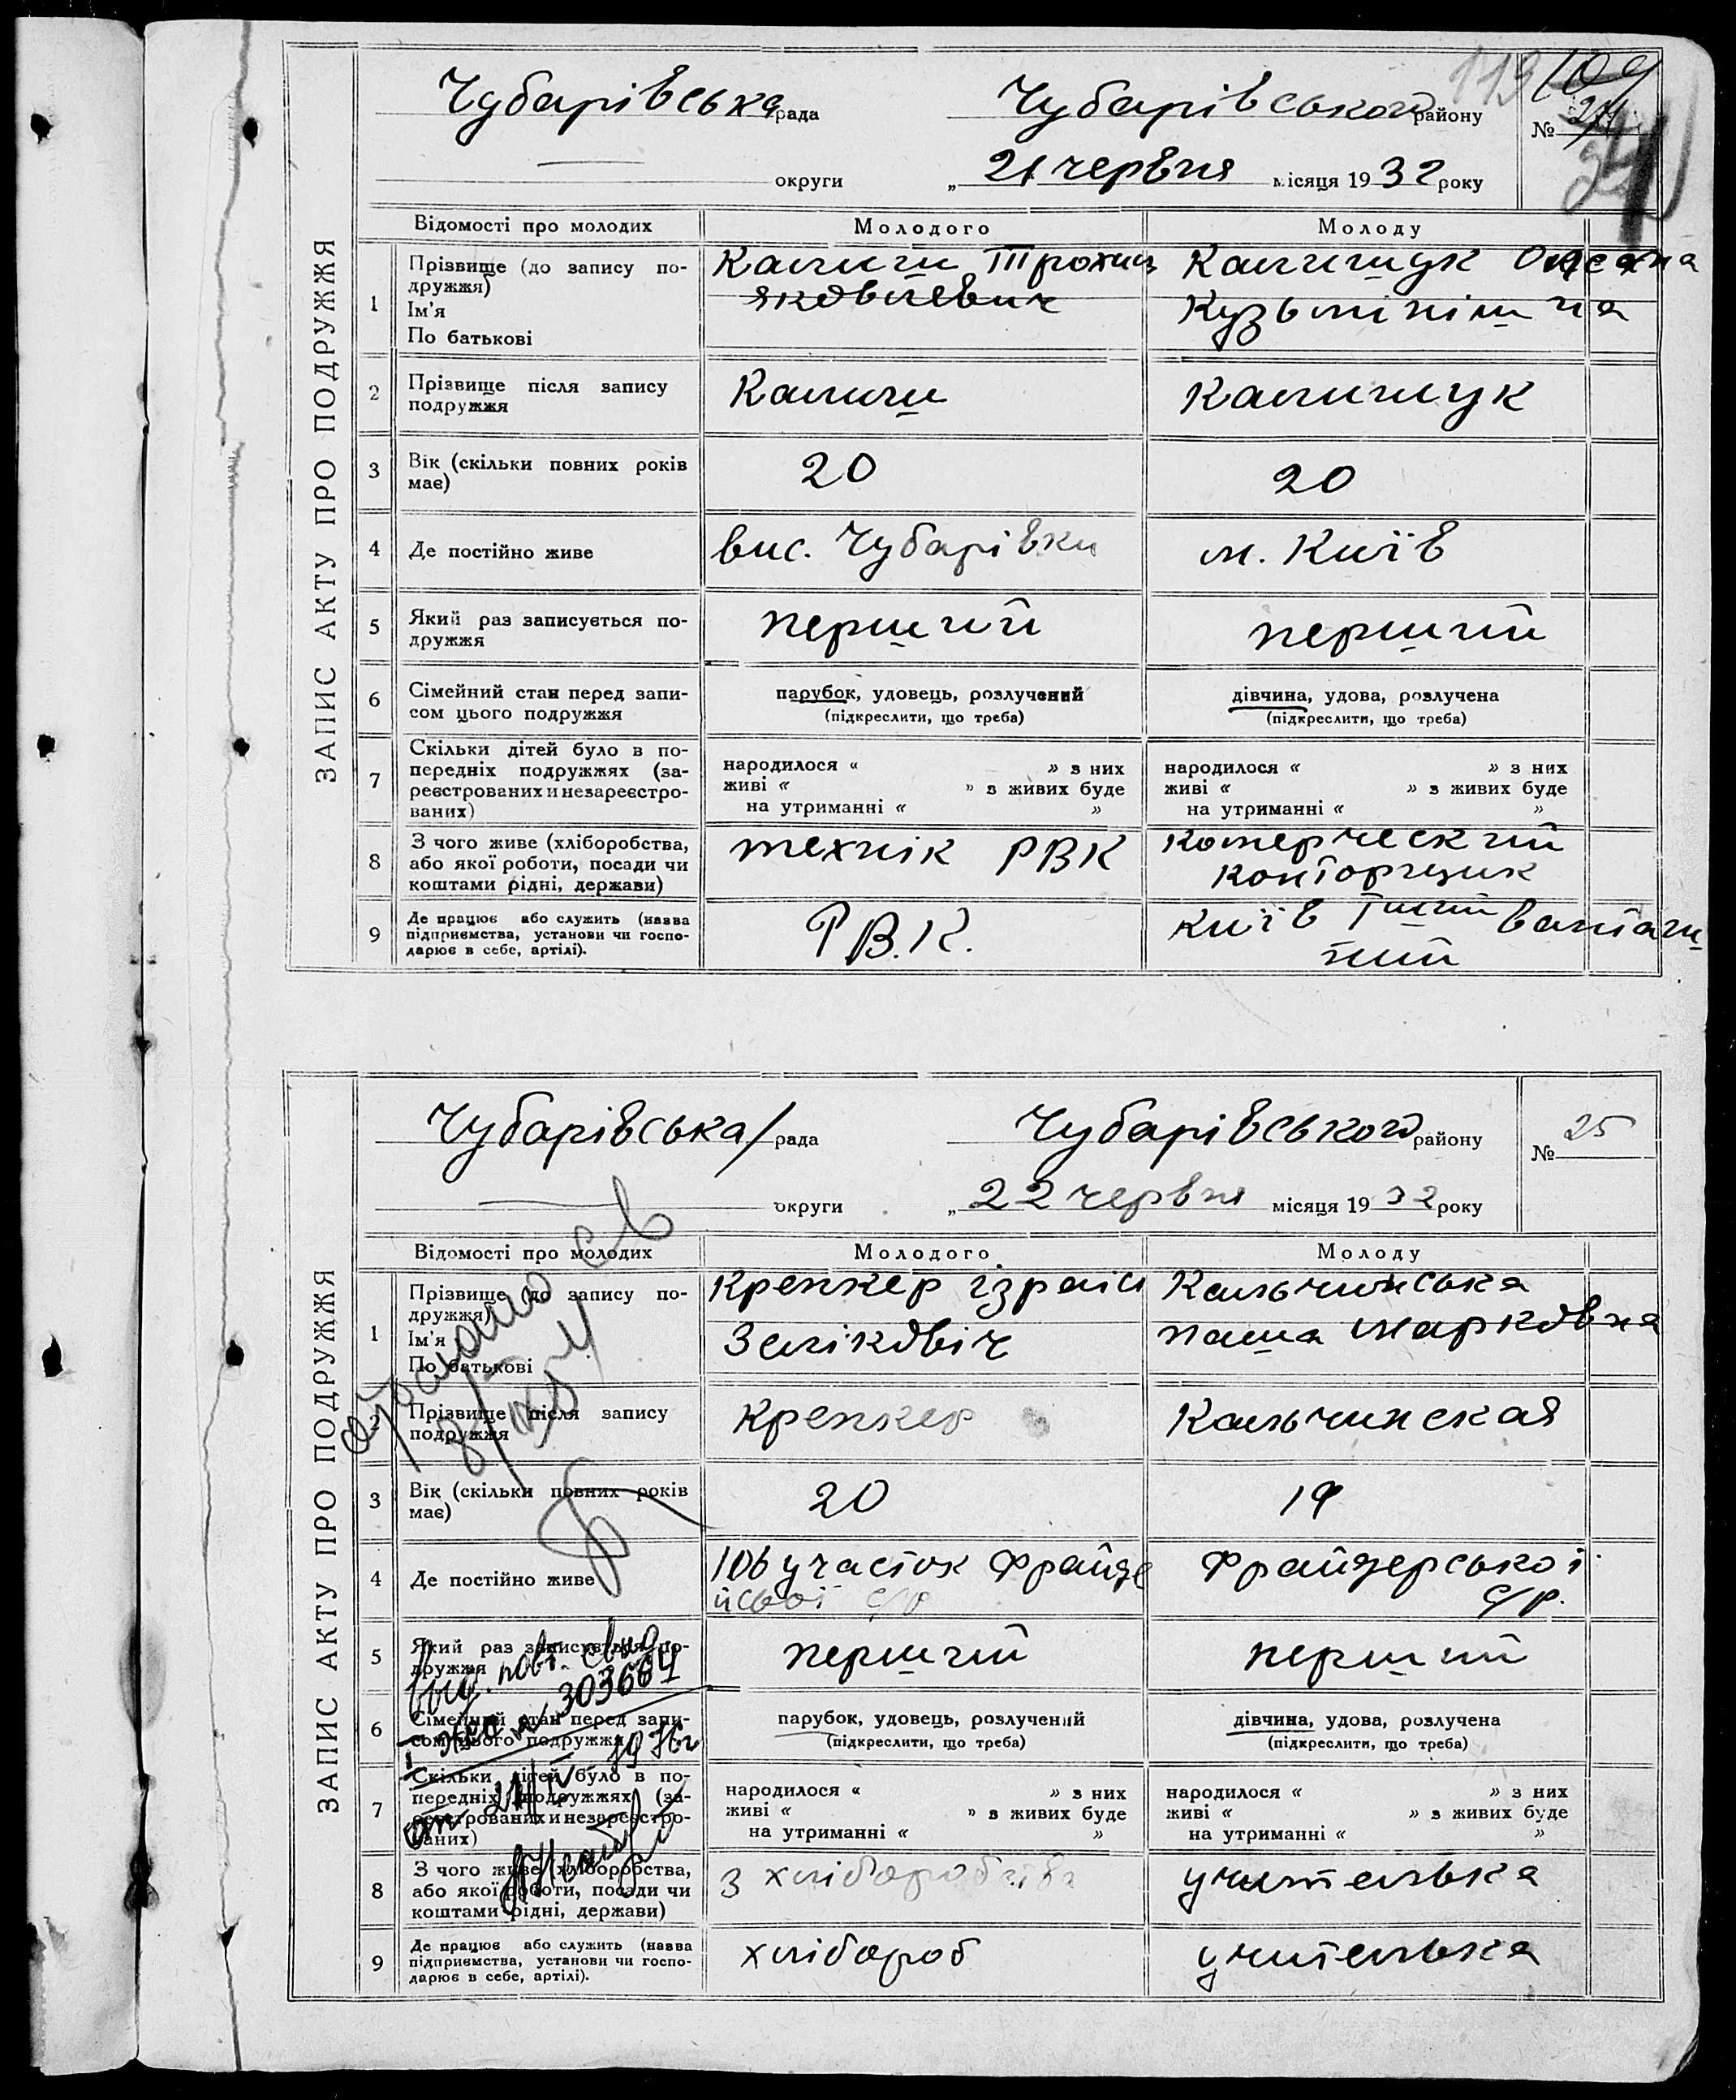 ЗАПИС АКТУ ПРО ПОДРУЖЖЯ
113 109
Чубарівська рада Чубарівського району № 24
24
округи „ 21 червня місяця 1932 року
Відомості про молодих Молодого Молоду
1 Прізвище (до запису по-
дружжя)
Ім'я
По батькові
Яковлевич
Калишук Оксана
Кузьминішна
2 Прізвище після запису
подружжя
Калишук
3 Вік (скільки повних років
має)
20 20
4 Де постійно живе вис. Чубарівки м. Київ
5 Який раз записується по-
дружжя
перший перший
6 Сімейний стан перед запи-
сом цього подружжя
парубок, удовець, розлучений
(підкреслити, що треба)
дівчина, удова, розлучена
(підкреслити, що треба)
7 Скільки дітей було в по-
передніх подружжях (за-
реєстрованих и незареєстро-
ваних)
народилося « » з них
живі « » з живих буде
на утриманні « »
народилося « » з них
живі « » з живих буде
на утриманні « »
8 З чого живе (хліборобства,
або якої роботи, посади чи
коштами рідні, держави)
технік РВК
комерческий
конторщик
9 Де працює або служить (назва
підприємства, установи чи госпо-
дарює в себе, артілі).
Р.В.К.
Київ
ЗАПИС АКТУ ПРО ПОДРУЖЖЯ
Чубарівська рада Чубарівського району № 25
округи „ 22 червня місяця 1932 року
Відомості про молодих Молодого Молоду
1 Прізвище (до запису по-
дружжя)
Ім'я
По батькові
Крепкер Ізраіл
Зеліковіч
Кальчинська
паша Марковна
2 Прізвище після запису
подружжя
Крепкер Кальчинская
3 Вік (скільки повних років
має)
20 19
4 Де постійно живе
106 участок Фрайде
с/р
Фрайдерської
с/р.
5 Який раз записується по-
дружжя
перший перший
6 Сімейний стан перед запи-
сом цього подружжя
парубок, удовець, розлучений
(підкреслити, що треба)
дівчина, удова, розлучена
(підкреслити, що треба)
7 Скільки дітей було в по-
передніх подружжях (за-
реєстрованих и незареєстро-
ваних)
народилося « » з них
живі « » з живих буде
на утриманні « »
народилося « » з них
живі « » з живих буде
на утриманні « »
8 З чого живе (хліборобства,
або якої роботи, посади чи
коштами рідні, держави)
З хліборобства
учителька
9 Де працює або служить (назва
підприємства, установи чи госпо-
дарює в себе, артілі).
хлібороб учителька
выд. повт. свид
№ 303664
от 21/IV 1976г